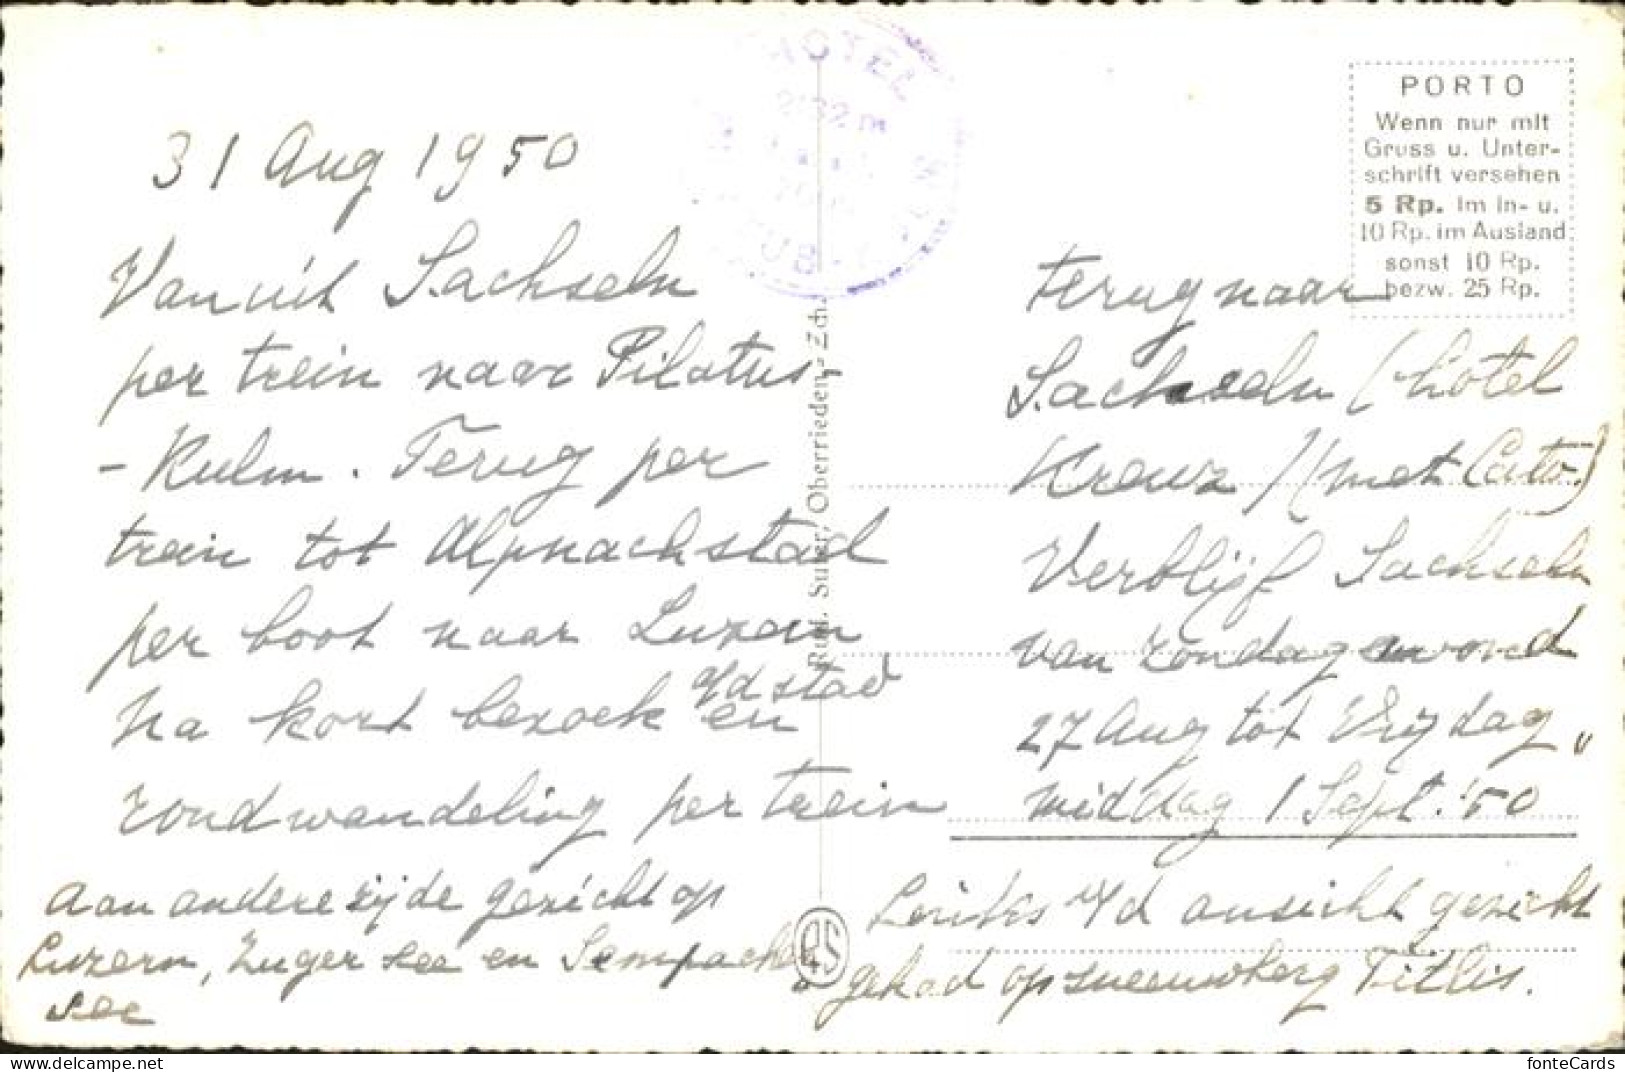 31 Aug 1950
Vanuit Sachseln
per trein naar Pilatus-
- Kulm. Terug per
trein tot Alpnachstad
per boot naar Luzern
v/d stad
Na kort bezoek en
rondwandeling per trein
Aan andere zijde gezicht op
Luzern, Zuger see en Sempacher
see
HOTEL
2132 m
KULM
Rud. Suter, Oberrieden-Zch.
RS
PORTO
Wenn nur mit
Gruss u. Unter-
schrift versehen
5 Rp. im In- u.
10 Rp. im Ausland
sonst 10 Rp.
bezw. 25 Rp.
terug naar
Sachseln (hotel
Kreuz) (met Auto)
Verblijf Sachseln
van Zondagavond
27 Aug tot Vrijdag
middag 1 Sept. '50
v/d ansicht gezicht
gehad op sneeuwberg Titlis.
delcampe.net
fonteCards